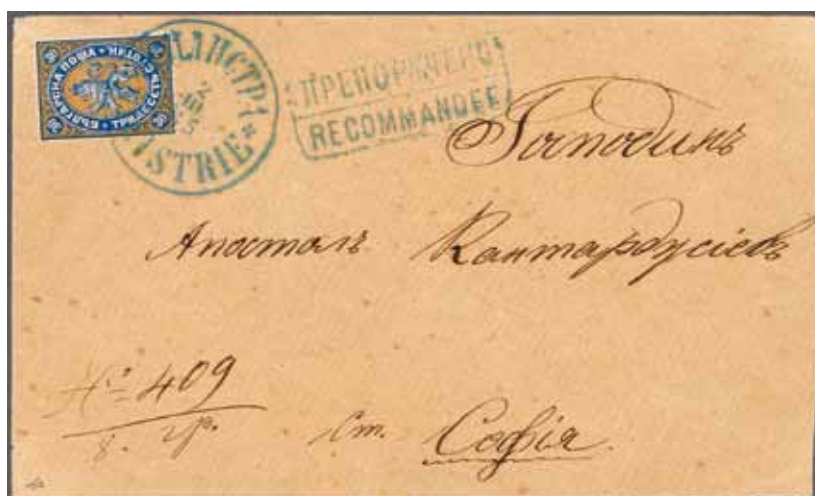 БЪЛГАРСКА ПОЩА
30
ИЛИСТРА
2
III
5
ISTRIE
ПРЕПОРѪЧЕНО
RECOMMANDÉE
Господинъ
Апостолъ Кантарджиевъ
№ 409
8. гр. Ст. Софія